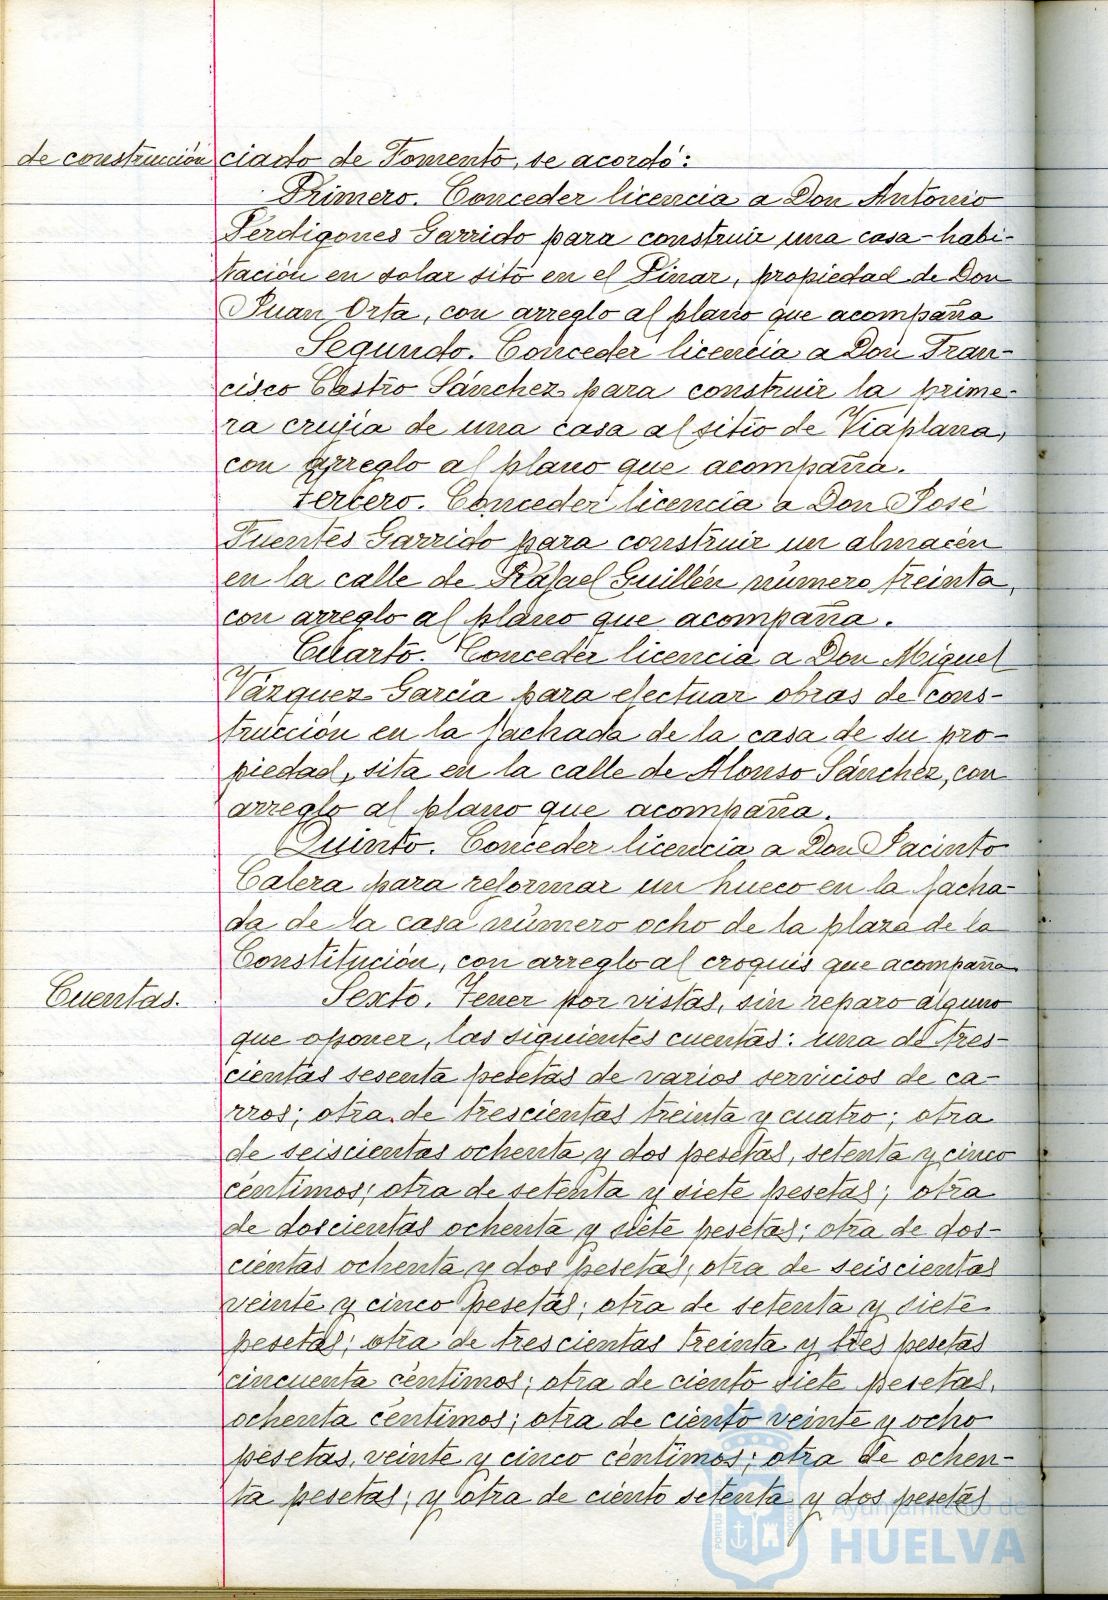 de construcción
ciado de Fomento, se acordó:
Primero. Conceder licencia a Don Antonio
Perdigones Garrido para construir una casa-habi-
tación en solar sito en el Pinar, propiedad de Don
Juan Orta, con arreglo al plano que acompaña
Segundo. Conceder licencia a Don Fran-
cisco Castro Sánchez para construir la prime-
ra crujía de una casa al sitio de Viaplana,
con arreglo al plano que acompaña.
Tercero. Conceder licencia a Don José
Fuentes Garrido para construir un almacén
en la calle de Rafael Guillén número treinta,
con arreglo al plano que acompaña.
Cuarto. Conceder licencia a Don Miguel
Vázquez García para efectuar obras de cons-
trucción en la fachada de la casa de su pro-
piedad, sita en la calle de Alonso Sánchez, con
arreglo al plano que acompaña.
Quinto. Conceder licencia a Don Jacinto
Calera para reformar un hueco en la facha-
da de la casa número ocho de la plaza de la
Constitución, con arreglo al croquis que acompaña
Cuentas.
Sexto. Tener por vistas, sin reparo alguno
que oponer, las siguientes cuentas: una de tres-
cientas sesenta pesetas de varios servicios de ca-
rros; otra de trescientas treinta y cuatro; otra
de seiscientas ochenta y dos pesetas, setenta y cinco
céntimos; otra de setenta y siete pesetas; otra
de doscientas ochenta y siete pesetas; otra de dos-
cientas ochenta y dos pesetas; otra de seiscientas
veinte y cinco pesetas; otra de setenta y siete
pesetas; otra de trescientas treinta y tres pesetas
cincuenta céntimos; otra de ciento siete pesetas,
ochenta céntimos; otra de ciento veinte y ocho
pesetas, veinte y cinco céntimos; otra de ochen-
ta pesetas; y otra de ciento setenta y dos pesetas
Ayuntamiento de
HUELVA